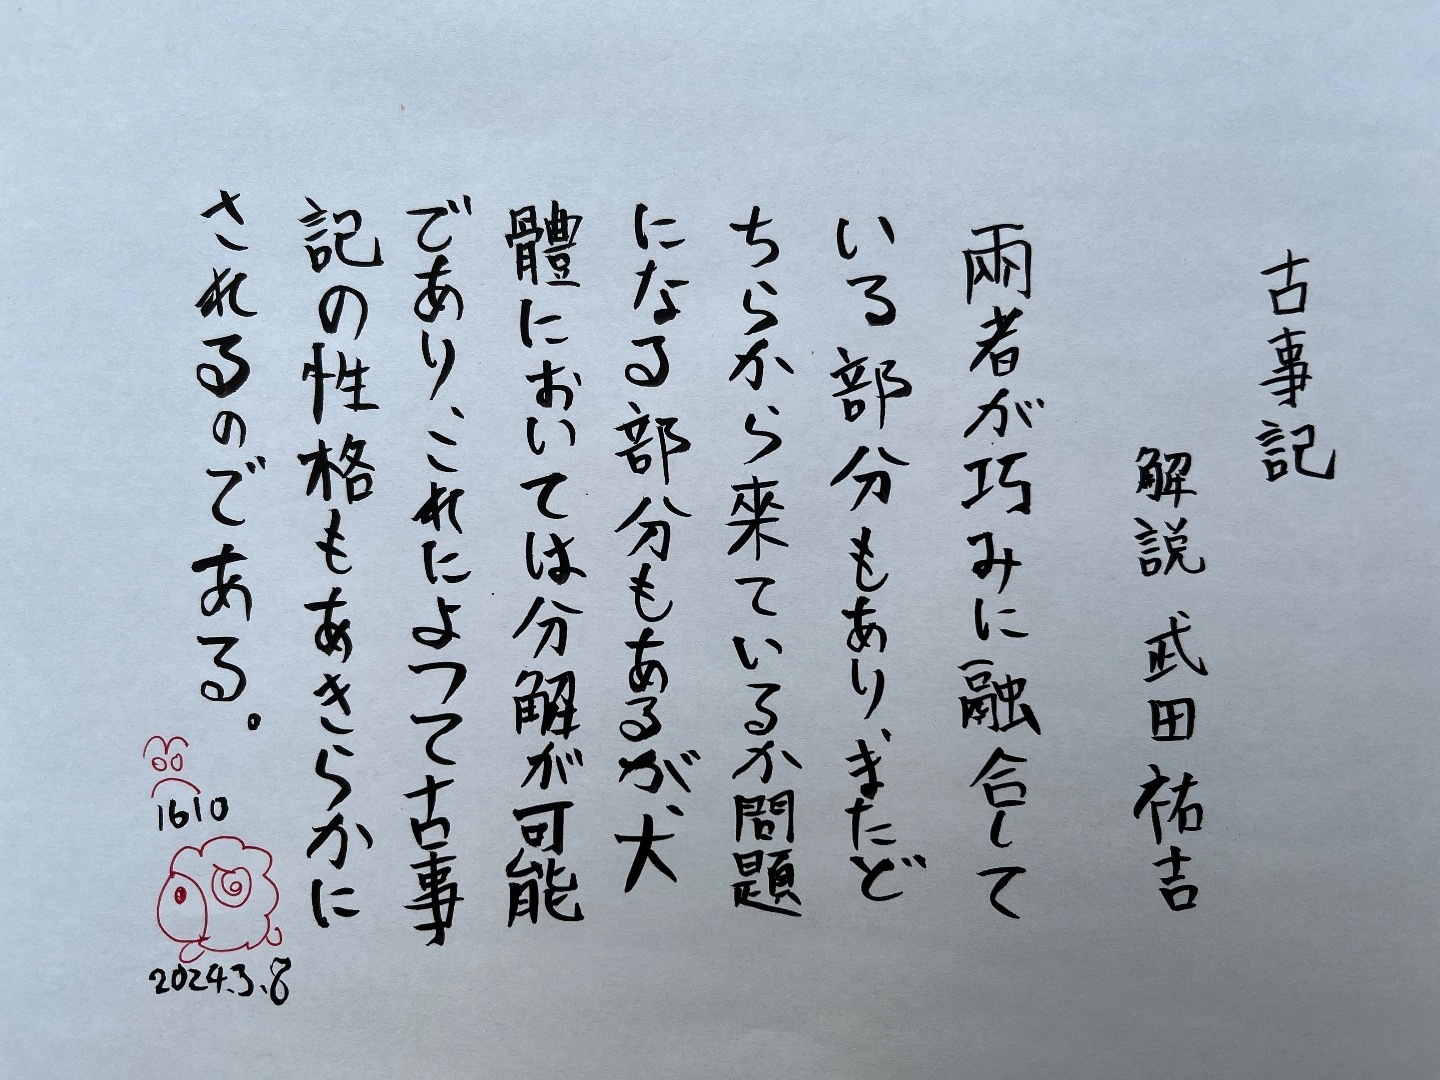 古事記
解説 武田祐吉
兩者が巧みに融合して
いる部分もあり、またど
ちらから來ているか問題
になる部分もあるが、大
體において は分解が可能
であり、これによつて古事
記の性格もあきらかに
されるのである。
1610
2024.3.8